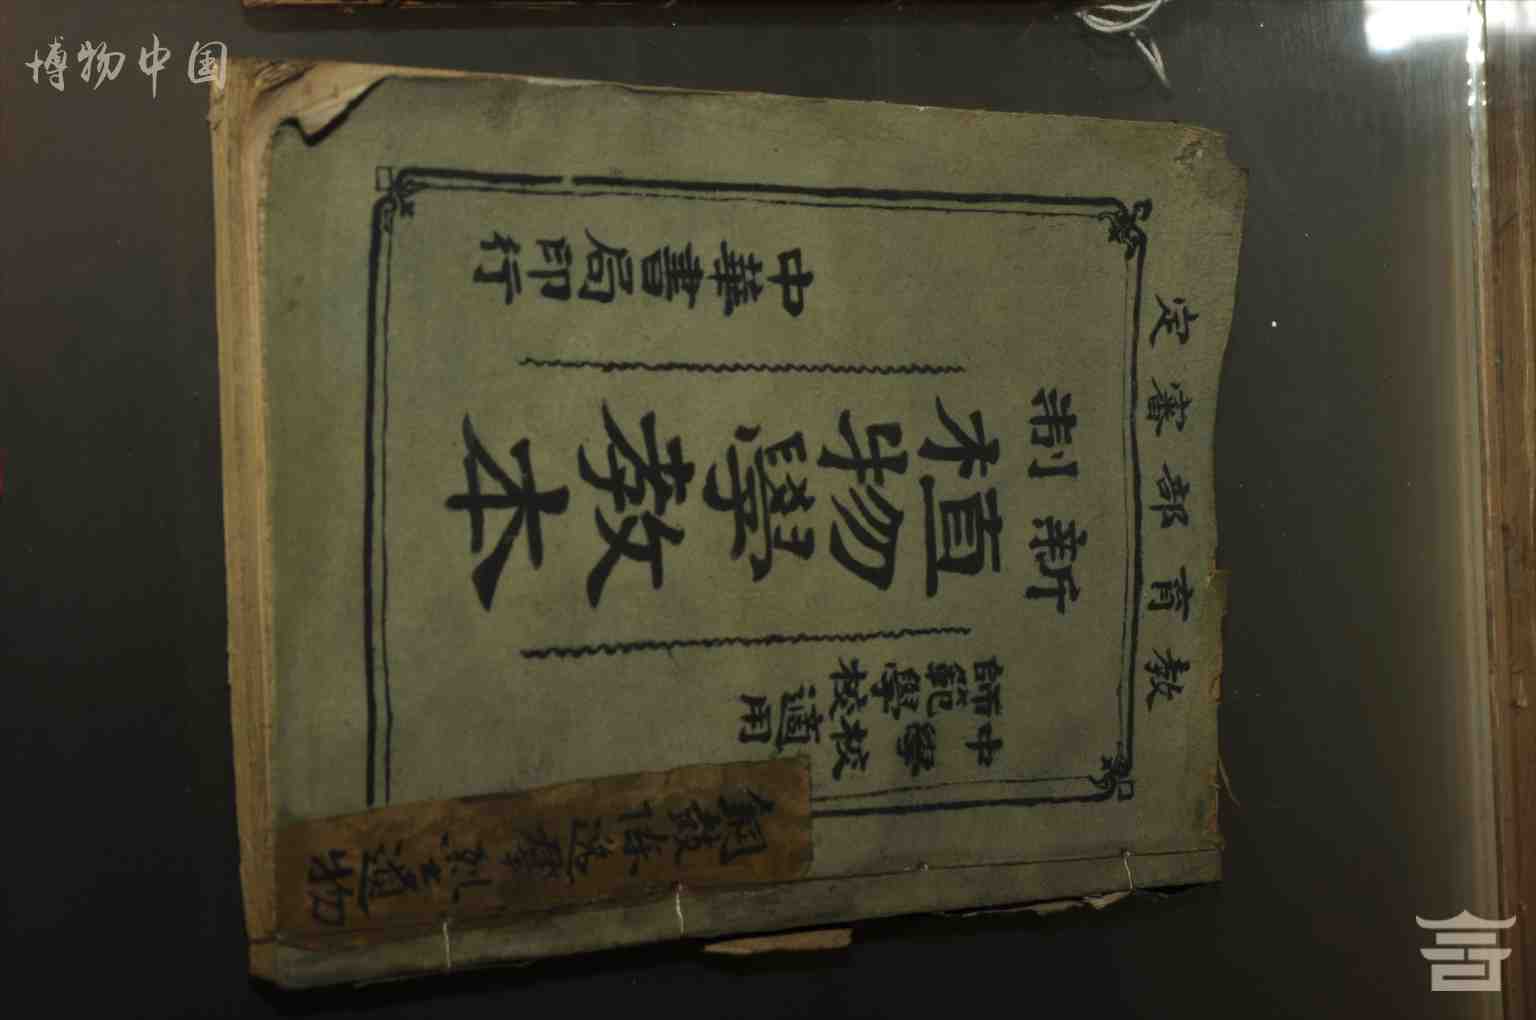 博物中国
教育部審定
新制
中學校
師範學校
適用
植物學教本
中華書局印行
銅鼓 烈士遺物